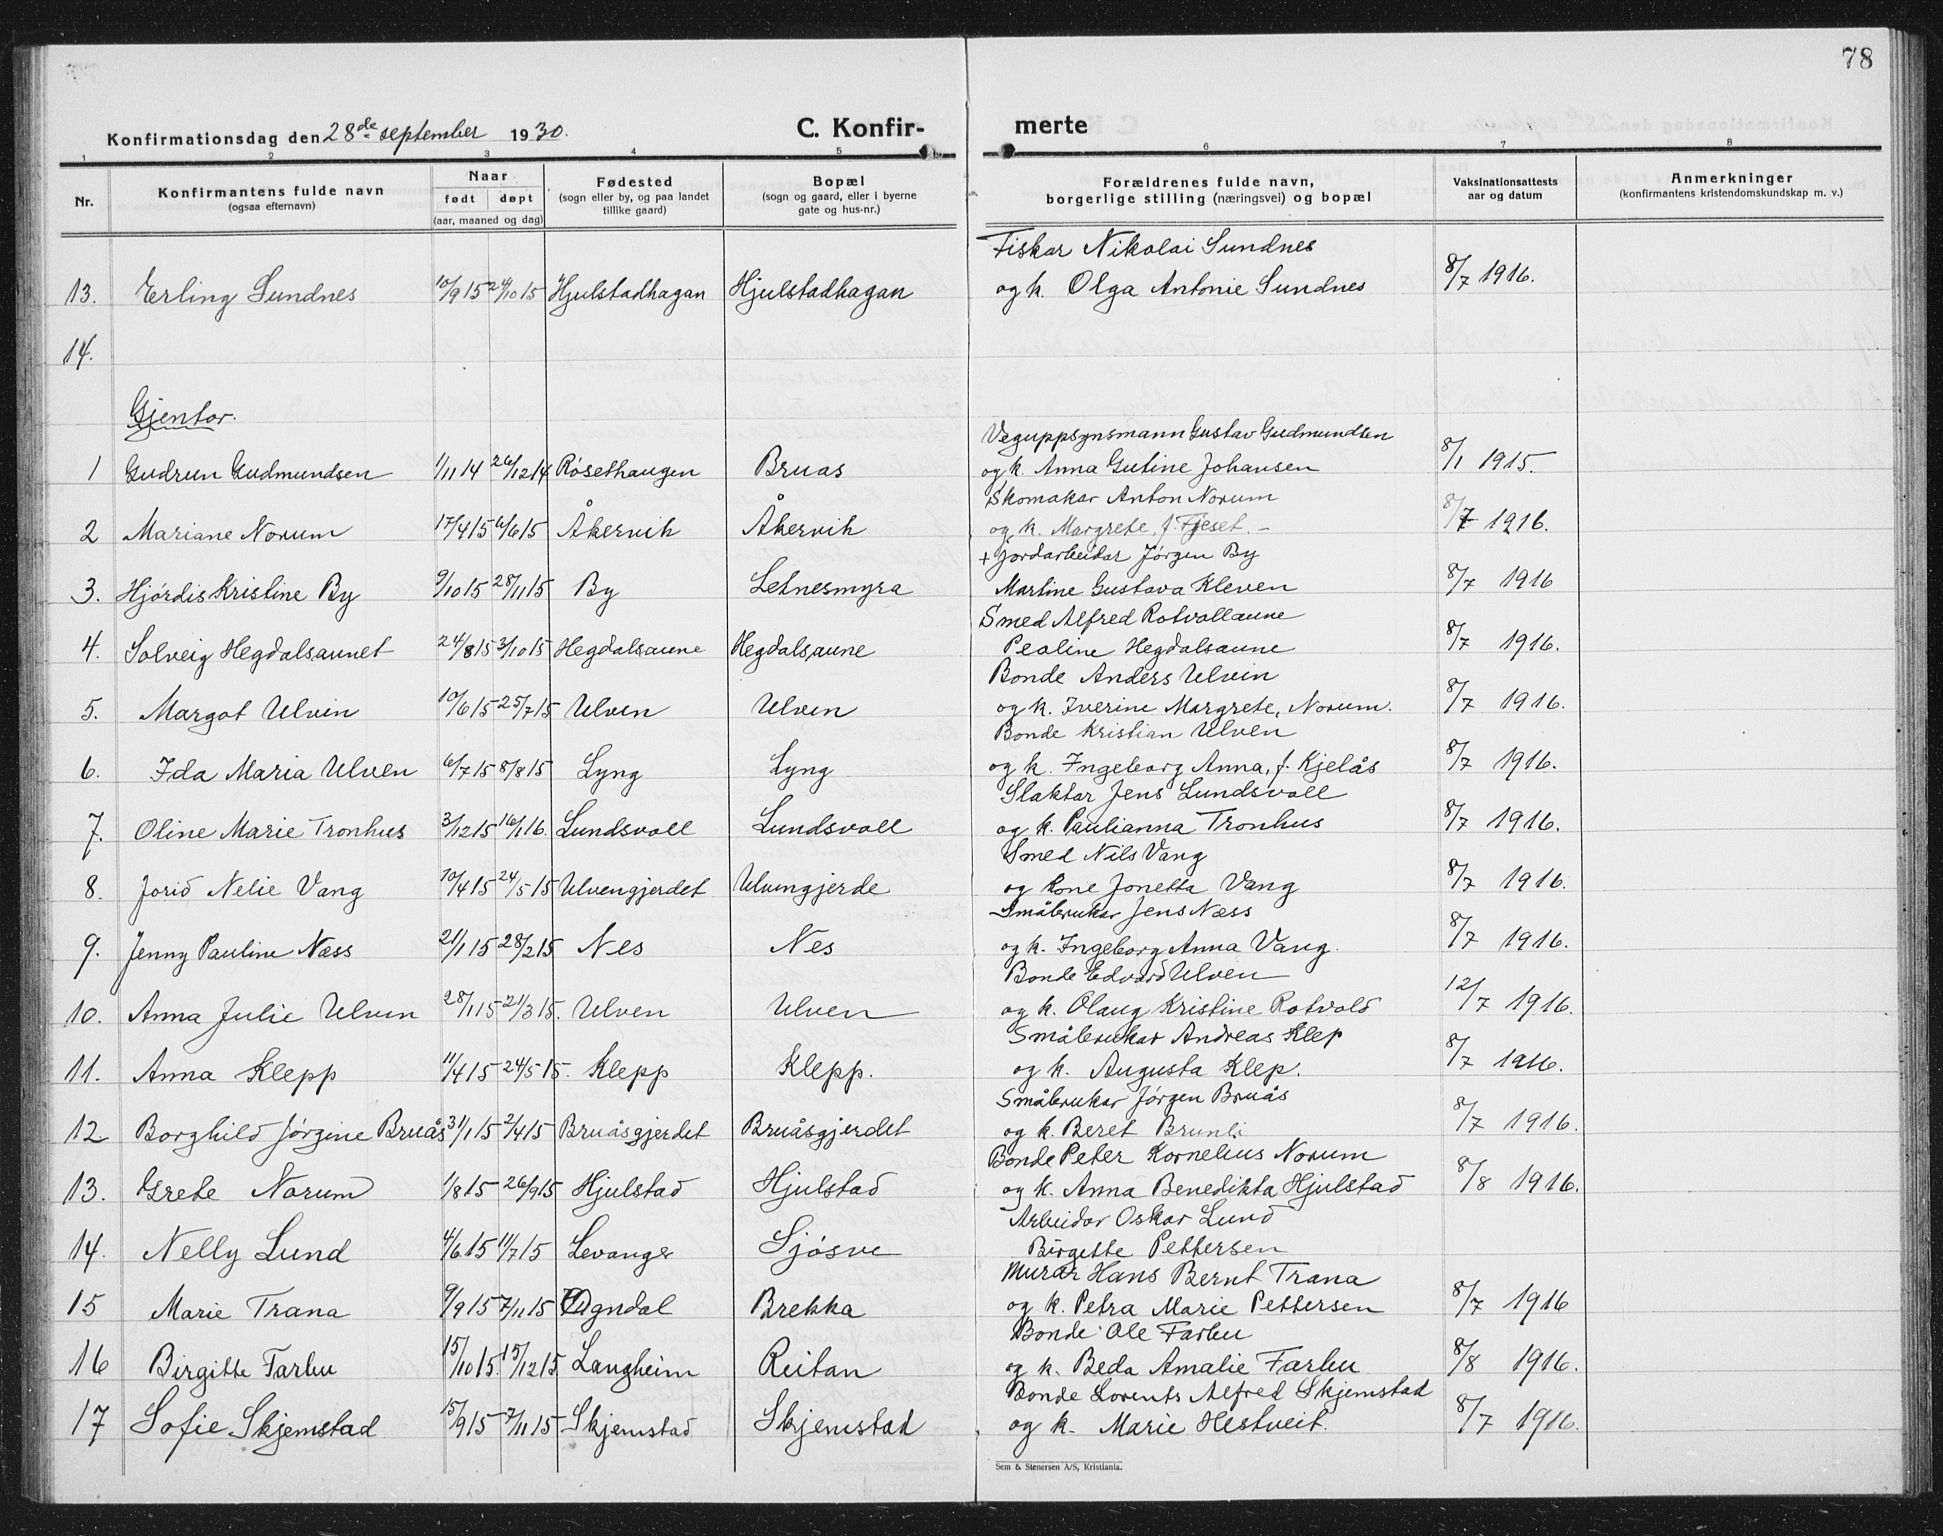 78
Konfirmationsdag den 28de september 1930.
C. Konfir- merte
1 2 3 4 5 6 7 8
Nr.
Konfirmantens fulde navn
(ogsaa efternavn)
Naar
født døpt
(aar, maaned og dag)
Fødested
(sogn eller by, og paa landet
tillike gaard)
Bopæl
(sogn og gaard, eller i byerne
gate og hus-nr.)
Forældrenes fulde navn,
borgerlige stilling (næringsvei) og bopæl
Vaksinationsattests
aar og datum
Anmerkninger
(konfirmantens kristendomskundskap m. v.)
Fiskar Nikolai Sundnes
13. Erling Sundnes 10/9 15 24/10 15 Hjulstadhagan Hjulstadhagan og k. Olga Antonie Sundnes 8/7 1916.
14.
Gjentor.
Veguppsynsmann Gustav Gudmundsen
1 Gudrun Gudmundsen 1/11 14 26/12 14 Røsethaugen Bruas og k. Anna Gutine Johansen 8/1 1915.
Skomakar Anton Norum
2 Mariane Norum 17/4 15 6/6 15 Åkervik Åkervik og k. Margrete f. Fjeset - 8/7 1916.
+ jordarbeidar Jørgen By
3. Hjørdis Kristine By 9/10 15 28/11 15 By Letnesmyra Martine Gustava Kleven 8/7 1916
Smed Alfred Rotvollaune
4. Solveig Hegdalsaunet 24/8 15 3/10 15 Hegdalsaune Hegdalsaune Peoline Hegdalsaune 8/7 1916.
Bonde Anders Ulvin
5. Margot Ulvin 10/6 15 25/7 15 Ulven Ulven og k. Iverine Margrete, Norum. 8/7 1916.
Bonde Kristian Ulven
6. Ida Maria Ulven 6/7 15 8/8 15 Lyng Lyng og k. Ingeborg Anna, f. Kjelås 8/7 1916.
Slaktar Jens Lundsvoll
7. Oline Marie Tronhus 3/12 15 16/1 16. Lundsvoll Lundsvoll og k. Paulianna Tronhus 8/7 1916.
Smed Nils Vang
8. Jorid Nelie Vang 10/4 15 24/5 15 Ulvengjerdet Ulvengjerde og kone Jonetta Vang 8/7 1916.
Småbrukar Jens Næss
9. Jenny Pauline Næss 21/1 15 28/2 15 Nes Nes og k. Ingeborg Anna Vang. 8/7 1916.
Bonde Edvard Ulven
10. Anna Julie Ulven 28/1 15 21/3 15. Ulven Ulven og k. Olaug Kristine Rotvold 12/7 1916.
Småbrukar Andreas Klep
11. Anna Klepp 11/4 15 24/5 15. Klepp Klepp. og k. Augusta Klep. 8/7 1916.
Småbrukar Jørgen Bruås
12 Borghild Jørgine Bruås 31/1 15 2/4 15 Bruåsgjerdet Bruåsgjerdet og k. Beret Brunli 8/7 1916.
Bonde Peter Kornelius Norum
13. Grete Norum 1/8 15 26/9 15 Hjulstad Hjulstad og k. Anna Benedikta Hjulstad 8/8 1916.
Arbeidar Oskar Lund
14. Nelly Lund 4/6 15 11/7 15 Levanger Sjøsve Birgette Pettersen
Murar Hans Bernt Trana
15 Marie Trana 9/9 15 7/11 15 Ogndal Brekka og k. Petra Marie Pettersen 8/7 1916
Bonde Ole Farbu
16 Birgitte Farbu 15/10 15. 15/12 15 Langheim Reitan og k. Beda Amalie Farbu 8/8 1916.
Bonde Lorents Alfred Skjemstad
17 Sofie Skjemstad 15/9 15 7/11 15 Skjemstad Skjemstad og k. Marie Hestveit. 8/7 1916.
Sem & Stenersen A/S, Kristiania.